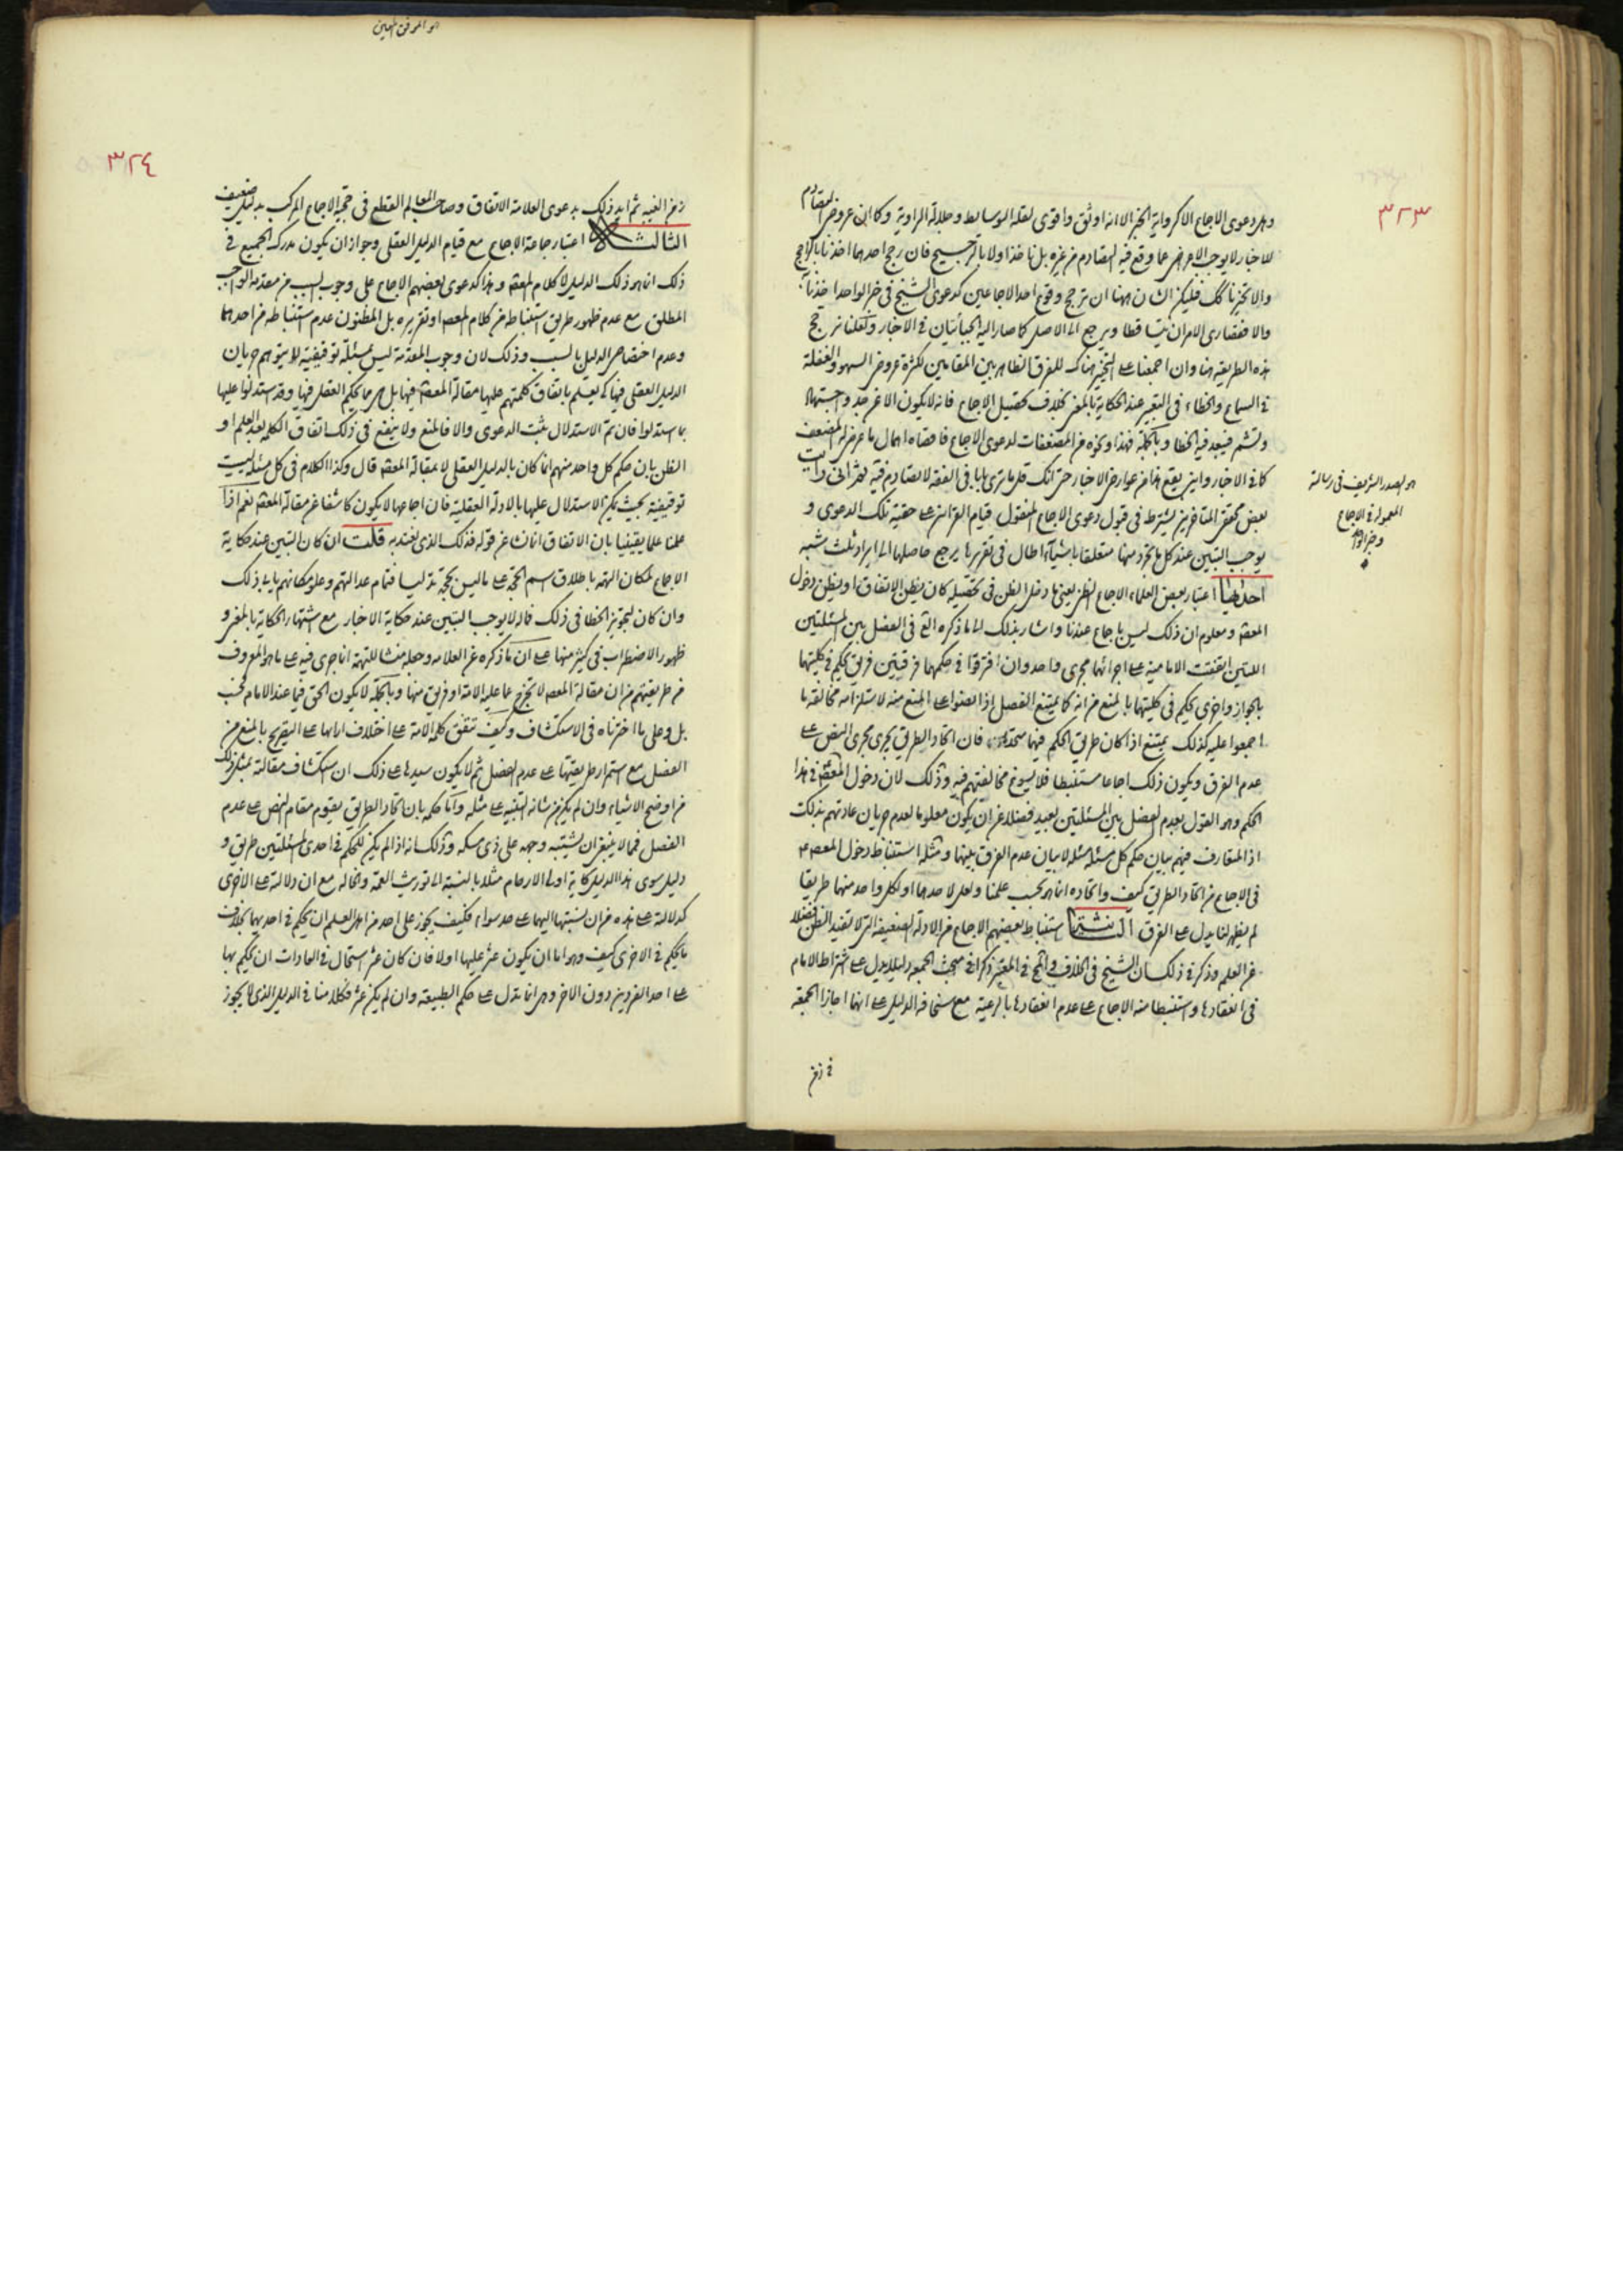 ٣٢٣
وهل دعوى الاجماع الا كرواية الخبر الا انه اوثق واقوى لقلة الوسايط وجلالة الراوية وكما ان عروض التصادم
للاخبار لا يوجب الاعراض عما وقع فيه التصادم من غيره بل ناخذ اولا بالترجيح فان رجح احدهما اخذنا بالراجح
والا تخيرنا فليكن الشان ههنا ان ترجح وقوع احد الاجماعين كدعوى الشيخ في خبر الواحد اخذنا به
والا فقصارى الامر ان يتساقطا ويرجع الى الاصل كما صار اليه الجبائيان في الاخبار ولعلنا نرجح
هذه الطريقة هنا وان اجمعنا على التخيير هناك للفرق الظاهر بين المقامين لكثرة عروض السهو والغفلة
في السماع والخطاء في التعبير عند الحكاية بالمعنى بخلاف تحصيل الاجماع فانه لا يكون الا عن جد واجتهاد
فيبعد فيه الخطا وبالجملة فهذا ونحوه من المضعفات لدعوى الاجماع فاقصاه اهمال ما عرض له المضعف
كما في الاخبار واين يقع هذا من عوارض الاخبار حتى انك قل ما ترى بابا في الفقه لا تصادم فيه ثم اني رايت
بعض محققي المتأخرين يشترط في قبول دعوى الاجماع المنقول قيام القرائن على حقية تلك الدعوى و
يوجب التبين عند كل ما تجرد منها متعلقا باشياء اطال في تقريرها يرجع حاصلها الى ايراد ثلث شبه
احدها اعتبار بعض العلماء الاجماع الظني يعني ما دخل الظن في تحصيله كان يظن الاتفاق او يظن دخول
المعصوم ومعلوم ان ذلك ليس باجماع عندنا واشار بذلك الى ما ذكره في الفصل بين المسئلتين
اللتين اتفقت الامامية على اجرائهما مجرى واحد وان افترقوا في حكمها فرقتين فريق يحكم في كليتهما
بالجواز واخرى يحكم في كليتهما بالمنع من انه كما يمتنع الفصل اذا نصوا على المنع منه لاستلزامه مخالفة ما
اجمعوا عليه كذلك يمتنع اذا كان طريق الحكم فيهما متحدا فان اتحاد الطريق يجرى مجرى النص على
عدم الفرق ويكون ذلك اجماعا مستنبطا فلا يسوغ مخالفتهم فيه وذلك لان دخول المعصوم في هذا
الحكم وهو القول بعدم الفصل بين المسئلتين بعيد فضلا عن ان يكون معلوما لعدم جريان عادتهم بذلك
اذ المتعارف فيهم بيان حكم كل مسئلة مسئلة لا بيان عدم الفرق بينهما ومثله استنباط دخول المعصوم
في الاجماع من اتحاد الطريق كيف واتحاده انما هو بحسب علمنا ولعل لاحدهما او لكل واحد منهما طريقا
لم يظهر لنا يدل على الفرق الثانية استنباط بعضهم الاجماع من الادلة الضعيفة التي لا تفيد الظن فضلا
عن العلم وذكر في ذلك ان الشيخ في الخلاف والمحقق في المعتبر ذكرا في مبحث الجمعة دليلا يدل على اشتراط الامام
في انعقادها واستنبطا منه الاجماع على عدم انعقادها بالرعية مع سخافة الدليل على انهما اجازا الجمعة
في زمن
هو الصدر الشريف في رسالته
المعمولة في الاجماع
وخبر الواحد
هو الموفق المعين
٣٢٤
زمن الغيبة ثم ايد ذلك بدعوى العلامة الاتفاق وصاحب المعالم القطع في حجية الاجماع المركب بدليل ضعيف
الثالث اعتبار جماعة الاجماع مع قيام الدليل العقلي وجواز ان يكون مدرك الجميع في
ذلك انما هو ذلك الدليل لا كلام المعصوم وهذا كدعوى بعضهم الاجماع على وجوب السبب من مقدمة الواجب
المطلق مع عدم ظهور طريق استنباطه من كلام المعصوم او تقريره بل المظنون عدم استنباطه من احدهما
وعدم اختصاص الدليل بالسبب وذلك لان وجوب المقدمة ليس بمسئلة توقيفية لا يتوهم جريان
الدليل العقلي فيها كي يعلم باتفاق كلمتهم عليها مقالة المعصوم فيها بل هي مما يحكم العقل فيها وقد استدلوا عليها
بما استدلوا فان تم الاستدلال ثبت الدعوى والا فالمنع ولا ينفع في ذلك اتفاق الكلمة بعد العلم او
الظن بان حكم كل واحد منهم انما كان بالدليل العقلي لا بمقالة المعصوم قال وكذا الكلام في كل مسئلة ليست
توقيفية بحيث يمكن الاستدلال عليها بالادلة العقلية فان اجماعها لا يكون كاشفا عن مقالة المعصوم نعم اذا
علمنا علما يقينيا بان الاتفاق انما نشا عن قوله فذلك الذي نعتد به قلت ان كان التبين عند حكاية
الاجماع لمكان التهمة باطلاق اسم الحجة على ما ليس بحجة تدليسا فتمام عدالتهم وعلو مكانهم يابى ذلك
وان كان لتجويز الخطا في ذلك فماله لا يوجب التبين عند حكاية الاخبار مع اشتهار الحكاية بالمعنى و
ظهور الاضطراب في كثير منها على ان ما ذكره عن العلامة وجعله منشا للتهمة انما جرى فيه على ما هو المعروف
من طريقتهم من ان مقالة المعصوم لا تخرج عما عليه الامة او فريق منها وبالجملة لا يكون الحق فيما عند الامام فحسب
بل وعلى ما اخترناه في الاستكشاف وكيف تتفق كلمة الامة على اختلاف ارائها على التصريح بالمنع من
الفصل مع استمرار طريقتها على عدم الفصل ثم لا يكون سيدها على ذلك ان استكشاف مقالته بمثل ذلك
من اوضح الاشياء وان لم يكن من شانه التنبيه على مثله واما حكمه بان اتحاد الطريق يقوم مقام النص على عدم
الفصل فمما لا ينبغي ان يشتبه وجهه على ذي مسكة وذلك انه اذا لم يكن للحكم في احدى المسئلتين طريق و
دليل سوى هذا الدليل كاية اولي الارحام مثلا بالنسبة الى توريث العمة والخالة مع ان دلالته على الاخرى
كدلالته على هذه من ان نسبتها اليهما على حد سواء فكيف يجوز على احد من اهل العلم ان يحكم في احديهما بخلاف
ما يحكم في الاخرى كيف وهو اما ان يكون عثر عليها او لا فان كان عثر استحال في العادات ان يحكم بها
على احد الفردين دون الاخر وهي انما تدل على حكم الطبيعة وان لم يكن عثر فكلامنا في الدليل الذي لا يجوز